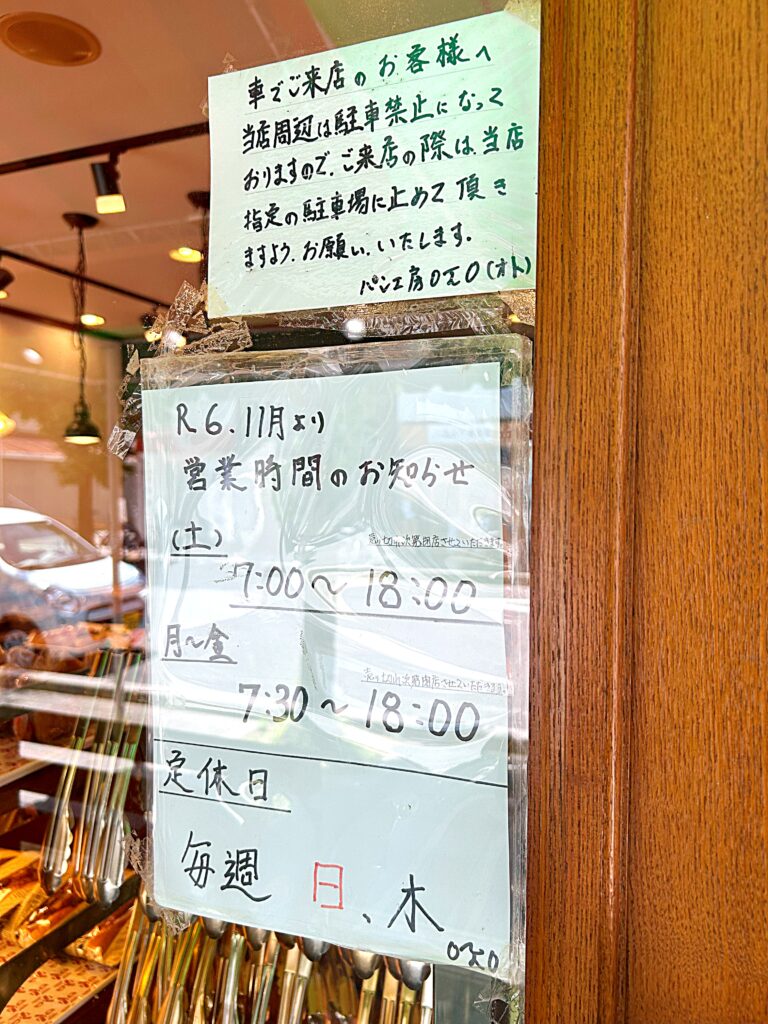 車でご来店のお客様へ
当店周辺は駐車禁止になって
おりますので、ご来店の際は、当店
指定の駐車場に止めて頂き
ますよう、お願い、いたします。
パン工房OZO(オト)
R6.11月より
営業時間のお知らせ
(土)
売り切れ次第閉店させていただきます。
7:00〜18:00
月〜金
売り切れ次第閉店させていただきます。
7:30〜18:00
定休日
毎週 日、木